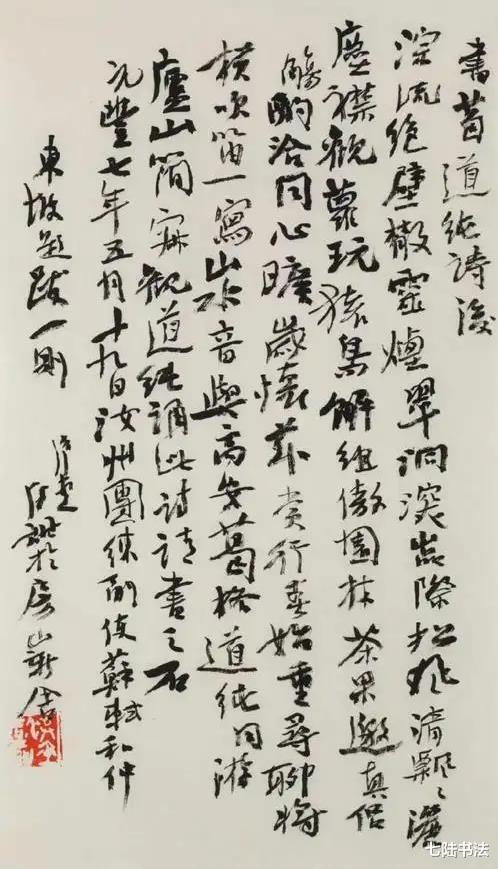 書葛道純詩後
淙流絕壁散靈煙翠洞深岩際松風清飄飄灑
塵襟觀蘿玩猿鳥解組傲園林茶果邀真侶
觴酌洽同心曠歲懷茲賞行春始重尋聊將
橫吹笛一寫山水音與高安葛格道純同游
廬山簡寂觀道純誦此詩請書之石
元豐七年五月十九日汝州團練副使蘇軾和仲
東坡題跋一則
於房山新舍
七陆书法